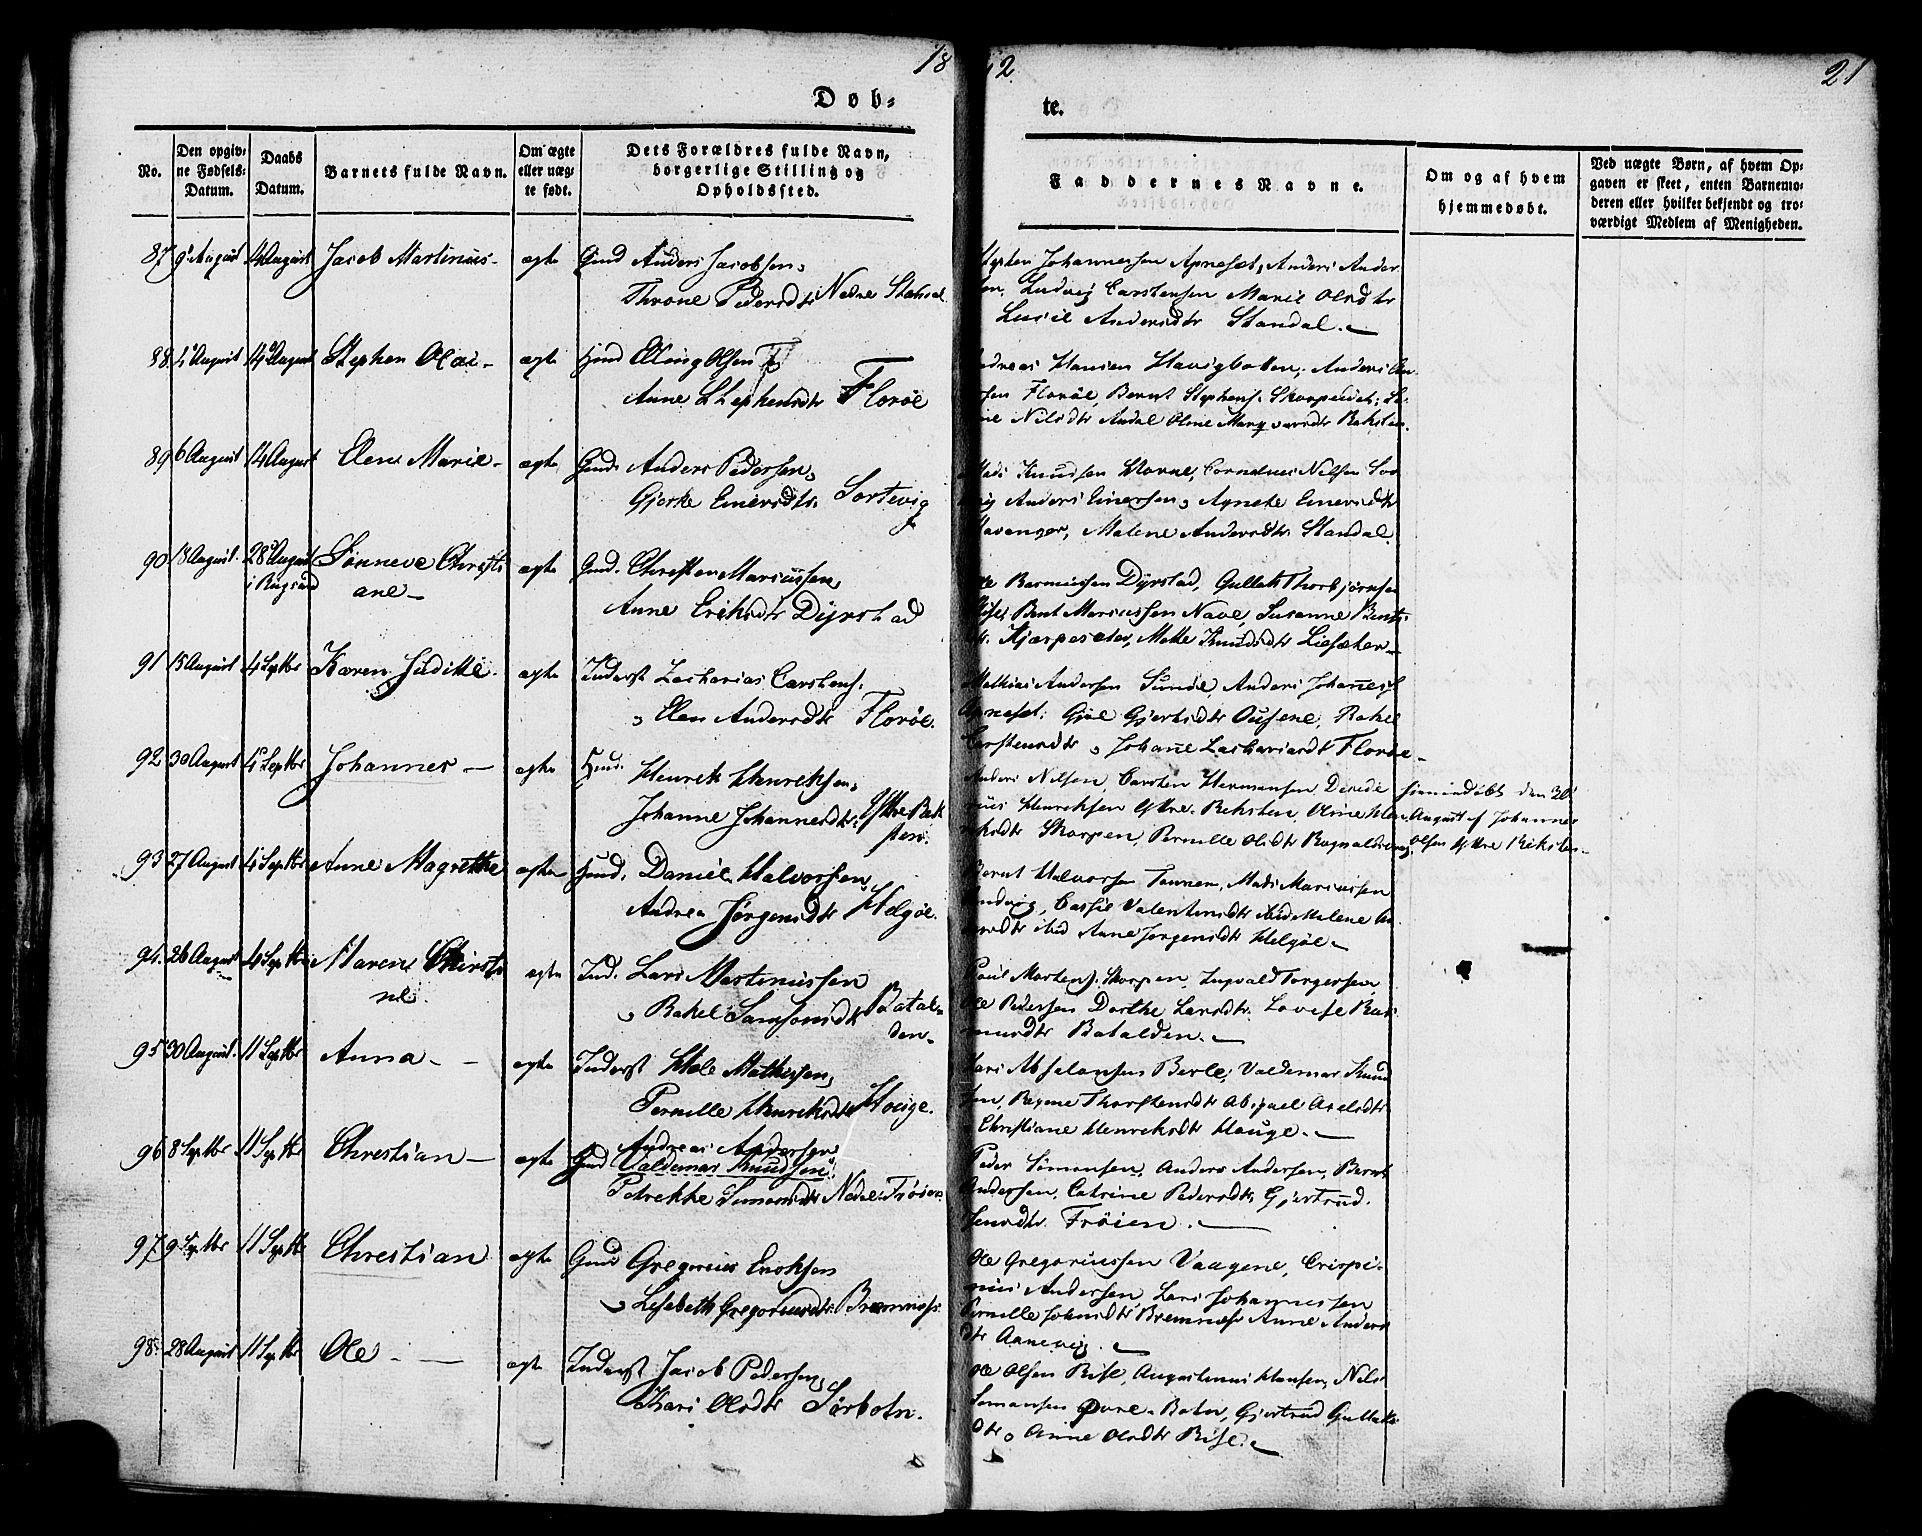 18
42
21
Døb-
te.
No.
Den opgiv-
ne Fødsels-
Datum.
Daabs
Datum.
Barnets fulde Navn.
Om ægte
eller uæg-
te født.
Dets Forældres fulde Navn,
borgerlige Stilling og
Opholdssted.
Faddernes Navne.
Om og af hvem
hjemmedøbt.
Ved uægte Børn, af hvem Op-
gaven er skeet, enten Barnemo-
deren eller hvilket bekjendt og tro-
værdigt Medlem af Menigheden.
87 9 August 14 August Jacob Martinus - ægte Gmd Anders Jacobsen,
Throne Pedersdtr Nedre Standal
Stephen Johannessen Apneset, Anders Ander-
sen, Ludvig Carstensen Marie Olsdtr
Lucie Andersdtr Standal.
88. 4 August 14 August Stephen Olai - ægte Elling Olsen
Anne Stephensdtr Florøe
Andreas Hansen Havigbotten, Anders
Florøe, Bernt Stephens. Skorpeidet,
Nilsdtr Andal Oline Marqvardtr Reksten.
89 6 August 14 August Elen Marie - ægte Gmd Anders Pedersen,
Gjerke Einersdtr. Sortevig
Mads Knudsen Horne, Cornelius Nilsen
Anders Einersen, Agnete Einersdtr
Stavenger, Malene Andersdtr Standal.
90 18 August. 28 August Sønneve Christi- ægte Gmd. Christen Mariussen,
ane -
Anne Eriksdtr Dyrstad
Ole Rasmussen Dyrstad, Gullak Thorbjørnsen
Rise, Bent Mariussen Nave, Susanne Bents-
dtr. Hjorpeseter, Mette Knudsdtr Lieseter -
91 15 August 4 Septbr Karen Juditte. ægte Inderst Zacharias Carstens.
Elen Andersdtr Florøe.
Mathias Andersen Sunde, Anders Johanes.
Apneset, Gjøe Gjertsdtr Ousene, Rakel
Carstensdtr, Johane Zachariasdt Florøe -
92 30 August 4 Septbr Johannes - ægte Henrik Henriksen,
Johanne Johannesdtr Yttre Rek-
sten.
Anders Nilsen, Carsten Hermansen,
Henriksen Yttre Reksten, Oline Hen-
riksdtr Skorpen, Pernille Olsdtr
hjemmedøbt den 30
August af Johannes
Olsen Yttre Reksten -
93 27 August 4 Septbr Anne Magrethe ægte Gmd. Daniel Halvorsen,
Andrea Jørgensdtr Helgøe.
Bernt Halvorsen Tonnen, Mads Mariussen
Indvig, Cassie Valentinsdtr Malene
Anne Jørgensdtr Helgøe -
94. 26 August 4 Septbr Maren Christi- ægte Ind. Lars Martinussen
ne.
Rakel Samsonsdtr Batal-
den -
Poul Mortens. Skorpen, Ingvald Torgersen,
Ole Pedersen Dorthe Larsdtr. Lovise Ras-
musdtr Batalden. -
95 30 August. 11 Septbr Anna - - ægte Inderst Mathissen,
Pernille Henriksdtr Houge.
Lars Absalonsen Berle, Valdemar Knud-
sen, Regine Thorstensdtr Abigael Axelsdtr
Christiane Henriksdtr Houge. -
96 8 Septbr 11 Septbr Christian - ægte Gmd Andreas Andersen
Valdemar Knudsen
Petrekke Simonsdtr Nedre Frøien.
Peder Simonsen, Anders Andersen, Bernt
Andersen, Catrine Pedersdtr, Gjertrud.
Frøien. -
97 9 Septbr 11 Septbr Christian ægte Gmd Gregorius Enoksen
Lisebeth Gregoriusdtr. Bremnes.
Ole Gregoriussen Vaagene, Crispi-
nus Andersen, Lars Johannessen
Pernille Johnsdtr Bremnes Anne Anders-
dtr Aanevig. -
98. 28 August 11 Septbr Ole - - ægte Inderst Jacob Pedersen,
Kari Olsdtr Sørbotn.
Ole Olsen Rise, Augustinus Hansen, Nils
Simonsen Botn, Gjertrud Gullaks-
dtr, Anne Olsdtr Rise. -